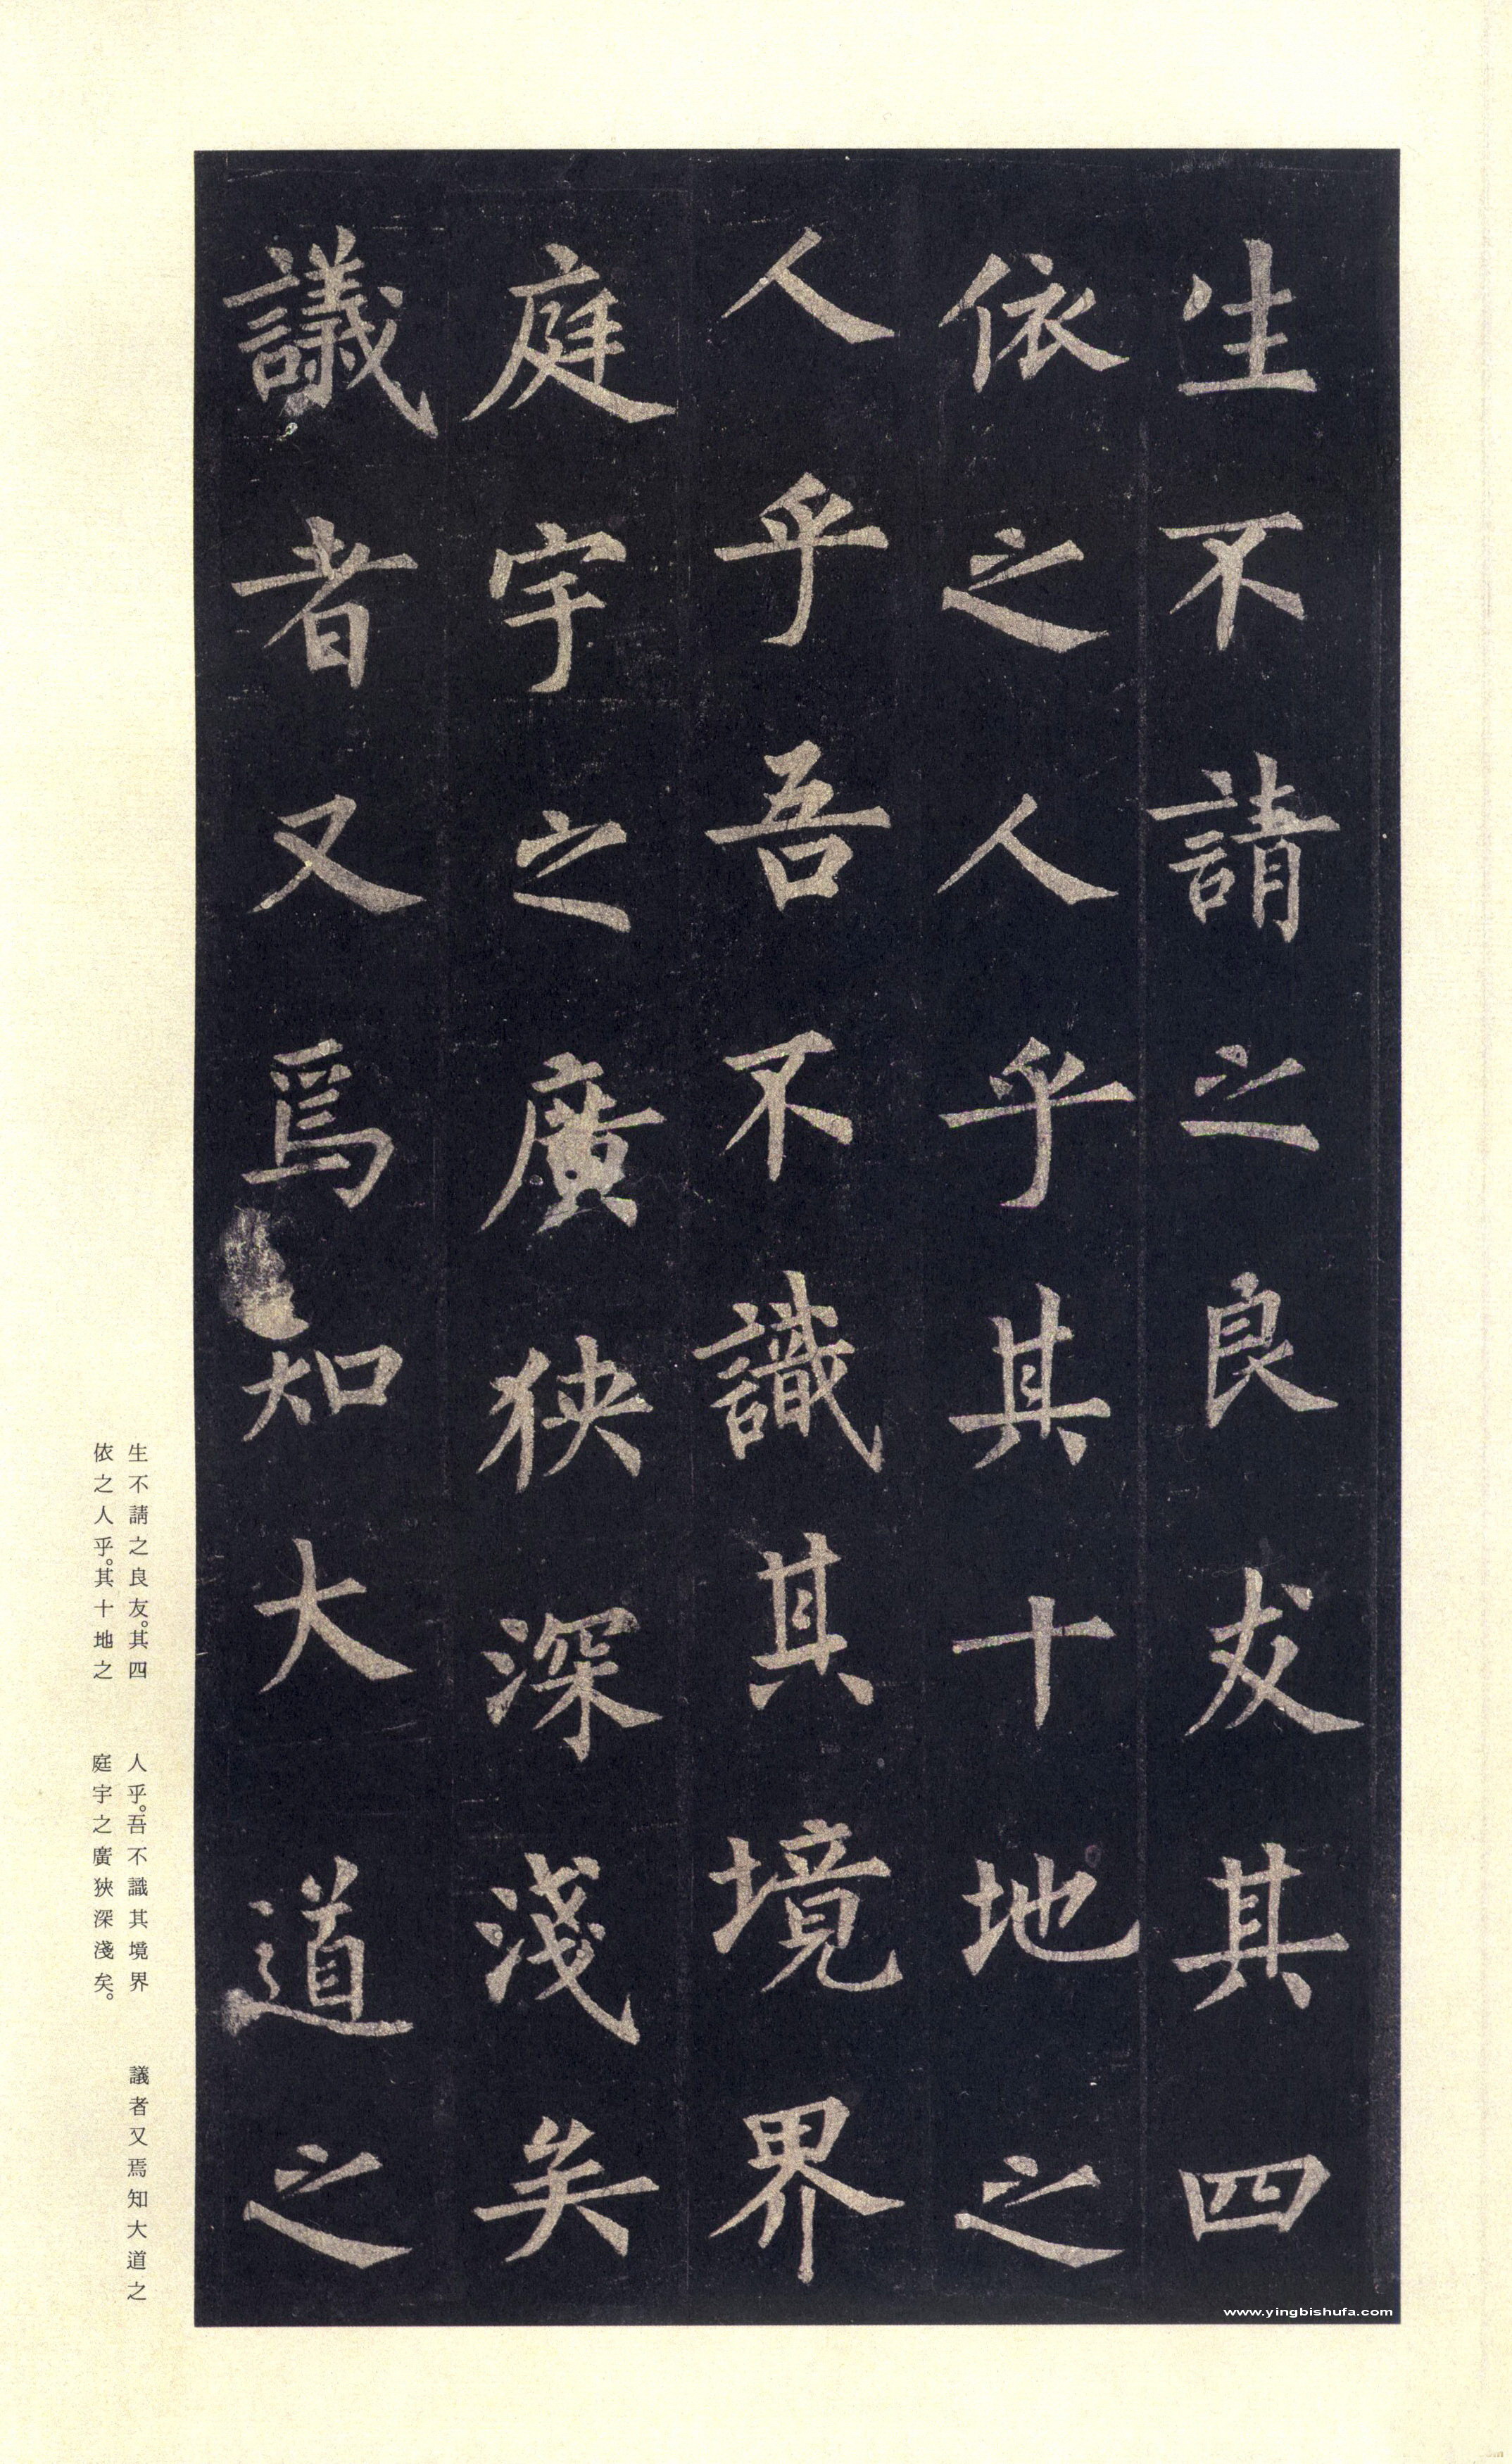 生不請之良友其四
依之人乎其十地之
人乎吾不識其境界
庭宇之廣狹深淺矣
議者又焉知大道之
www.yingbishufa.com
生不請之良友。其四
依之人乎。其十地之
人乎。吾不識其境界
庭宇之廣狹深淺矣。
議者又焉知大道之